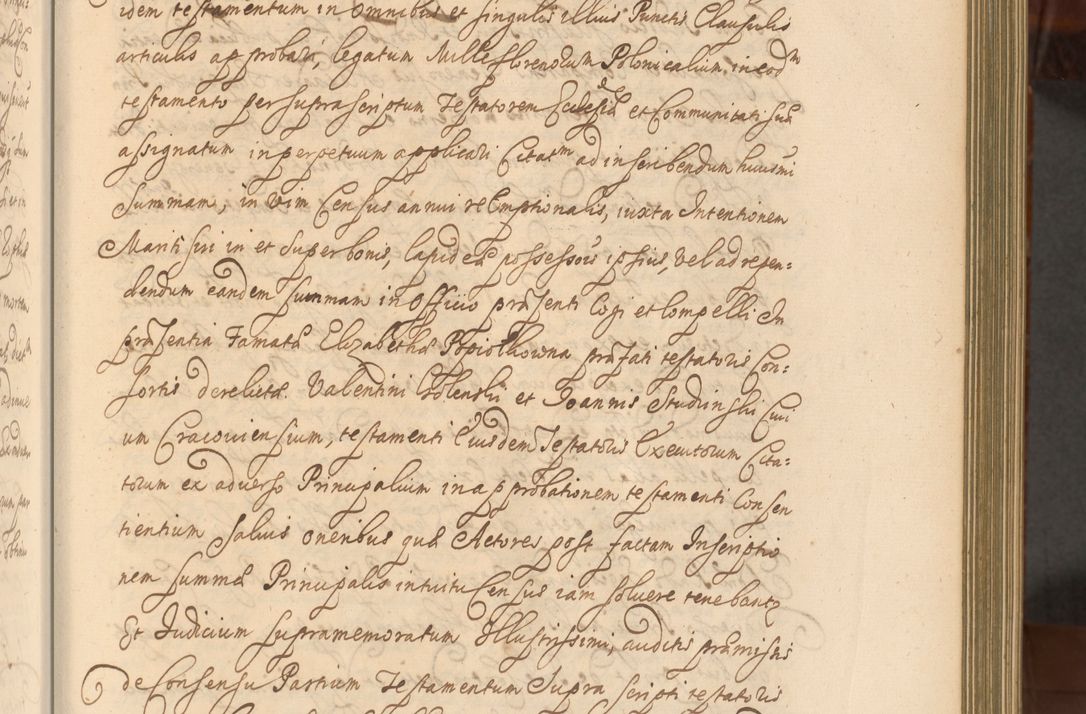 idem testamentum in omnibus et singulis illius Punctis Clausulis
articulis approbari, legatum Mille florenorum Polonicalium, in eodm
testamento per suprascriptum Testatorem Ecclesiæ et Communitati suæ
assignatum in perpetuum applicari Citatm ad inscribendum huiusmi
Summam, in Vim Census annui reEmptionalis, iuxta Intentionem
Mariti sui in et super bonis, lapidea possessois ipsius, vel ad repen=
dendum eandem summam in officio præsenti Cogi et Compelli In
præsentia Famatæ Elizabethæ Popiołkowna præfati testatoris Con=
sortis derelictæ. Valentini et Joannis Studzinski Civi
um Cracoviensium, testamenti Eiusdem Testatoris Executorum Cita=
torum ex adverso Principalium in approbationem testamenti Consen
tientium salvis oneribus quæ Actores post factam Inscriptio
nem summæ Principalis intuitu Census iam solvere tenebantz
Et Judicium supramemoratum Illustrissimi, auditis præmissis
de Consensu Partium Testamentum Supra scripti testatoris